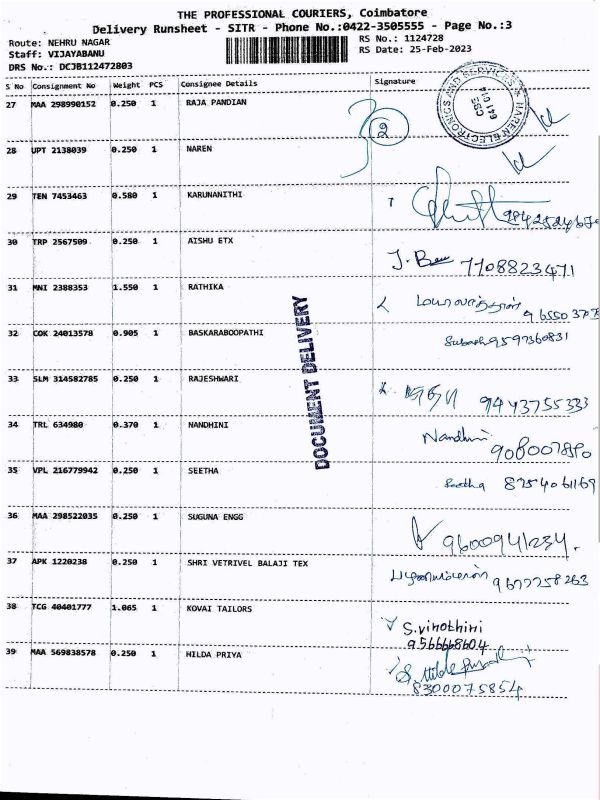 THE PROFESSIONAL COURIERS, Coimbatore
Delivery Runsheet - SITR - Phone No.:0422-3505555 - Page No.:3
Route: NEHRU NAGAR
RS No.: 1124728
Staff: VIJAYABANU
RS Date: 25-Feb-2023
DRS No.: DCJB112472803
S No Consignment No Weight PCS Consignee Details Signature
27 MAA 298990152 0.250 1 RAJA PANDIAN
2
HAREN ELECTRONICS AND SERVICES
CSE
641 014
28 UPT 2138039 0.250 1 NAREN
29 TEN 7453463 0.580 1 KARUNANITHI
30 TRP 2567509 0.250 1 AISHU ETX
7708823471
31 MNI 2388353 1.550 1 RATHIKA
32 COK 24013578 0.905 1 BASKARABOOPATHI
Subash 9597360831
33 SLM 314582785 0.250 1 RAJESHWARI
9443755333
34 TRL 634980 0.370 1 NANDHINI
Nandhini
35 VPL 216779942 0.250 1 SEETHA
Seetha 8754061169
36 MAA 298522035 0.250 1 SUGUNA ENGG
9600941234.
37 APK 1220238 0.250 1 SHRI VETRIVEL BALAJI TEX
9677258263
38 TCG 40401777 1.065 1 KOVAI TAILORS
S.vinothini
9566668604
39 MAA 569838578 0.250 1 HILDA PRIYA
8300075854
DOCUMENT DELIVERY